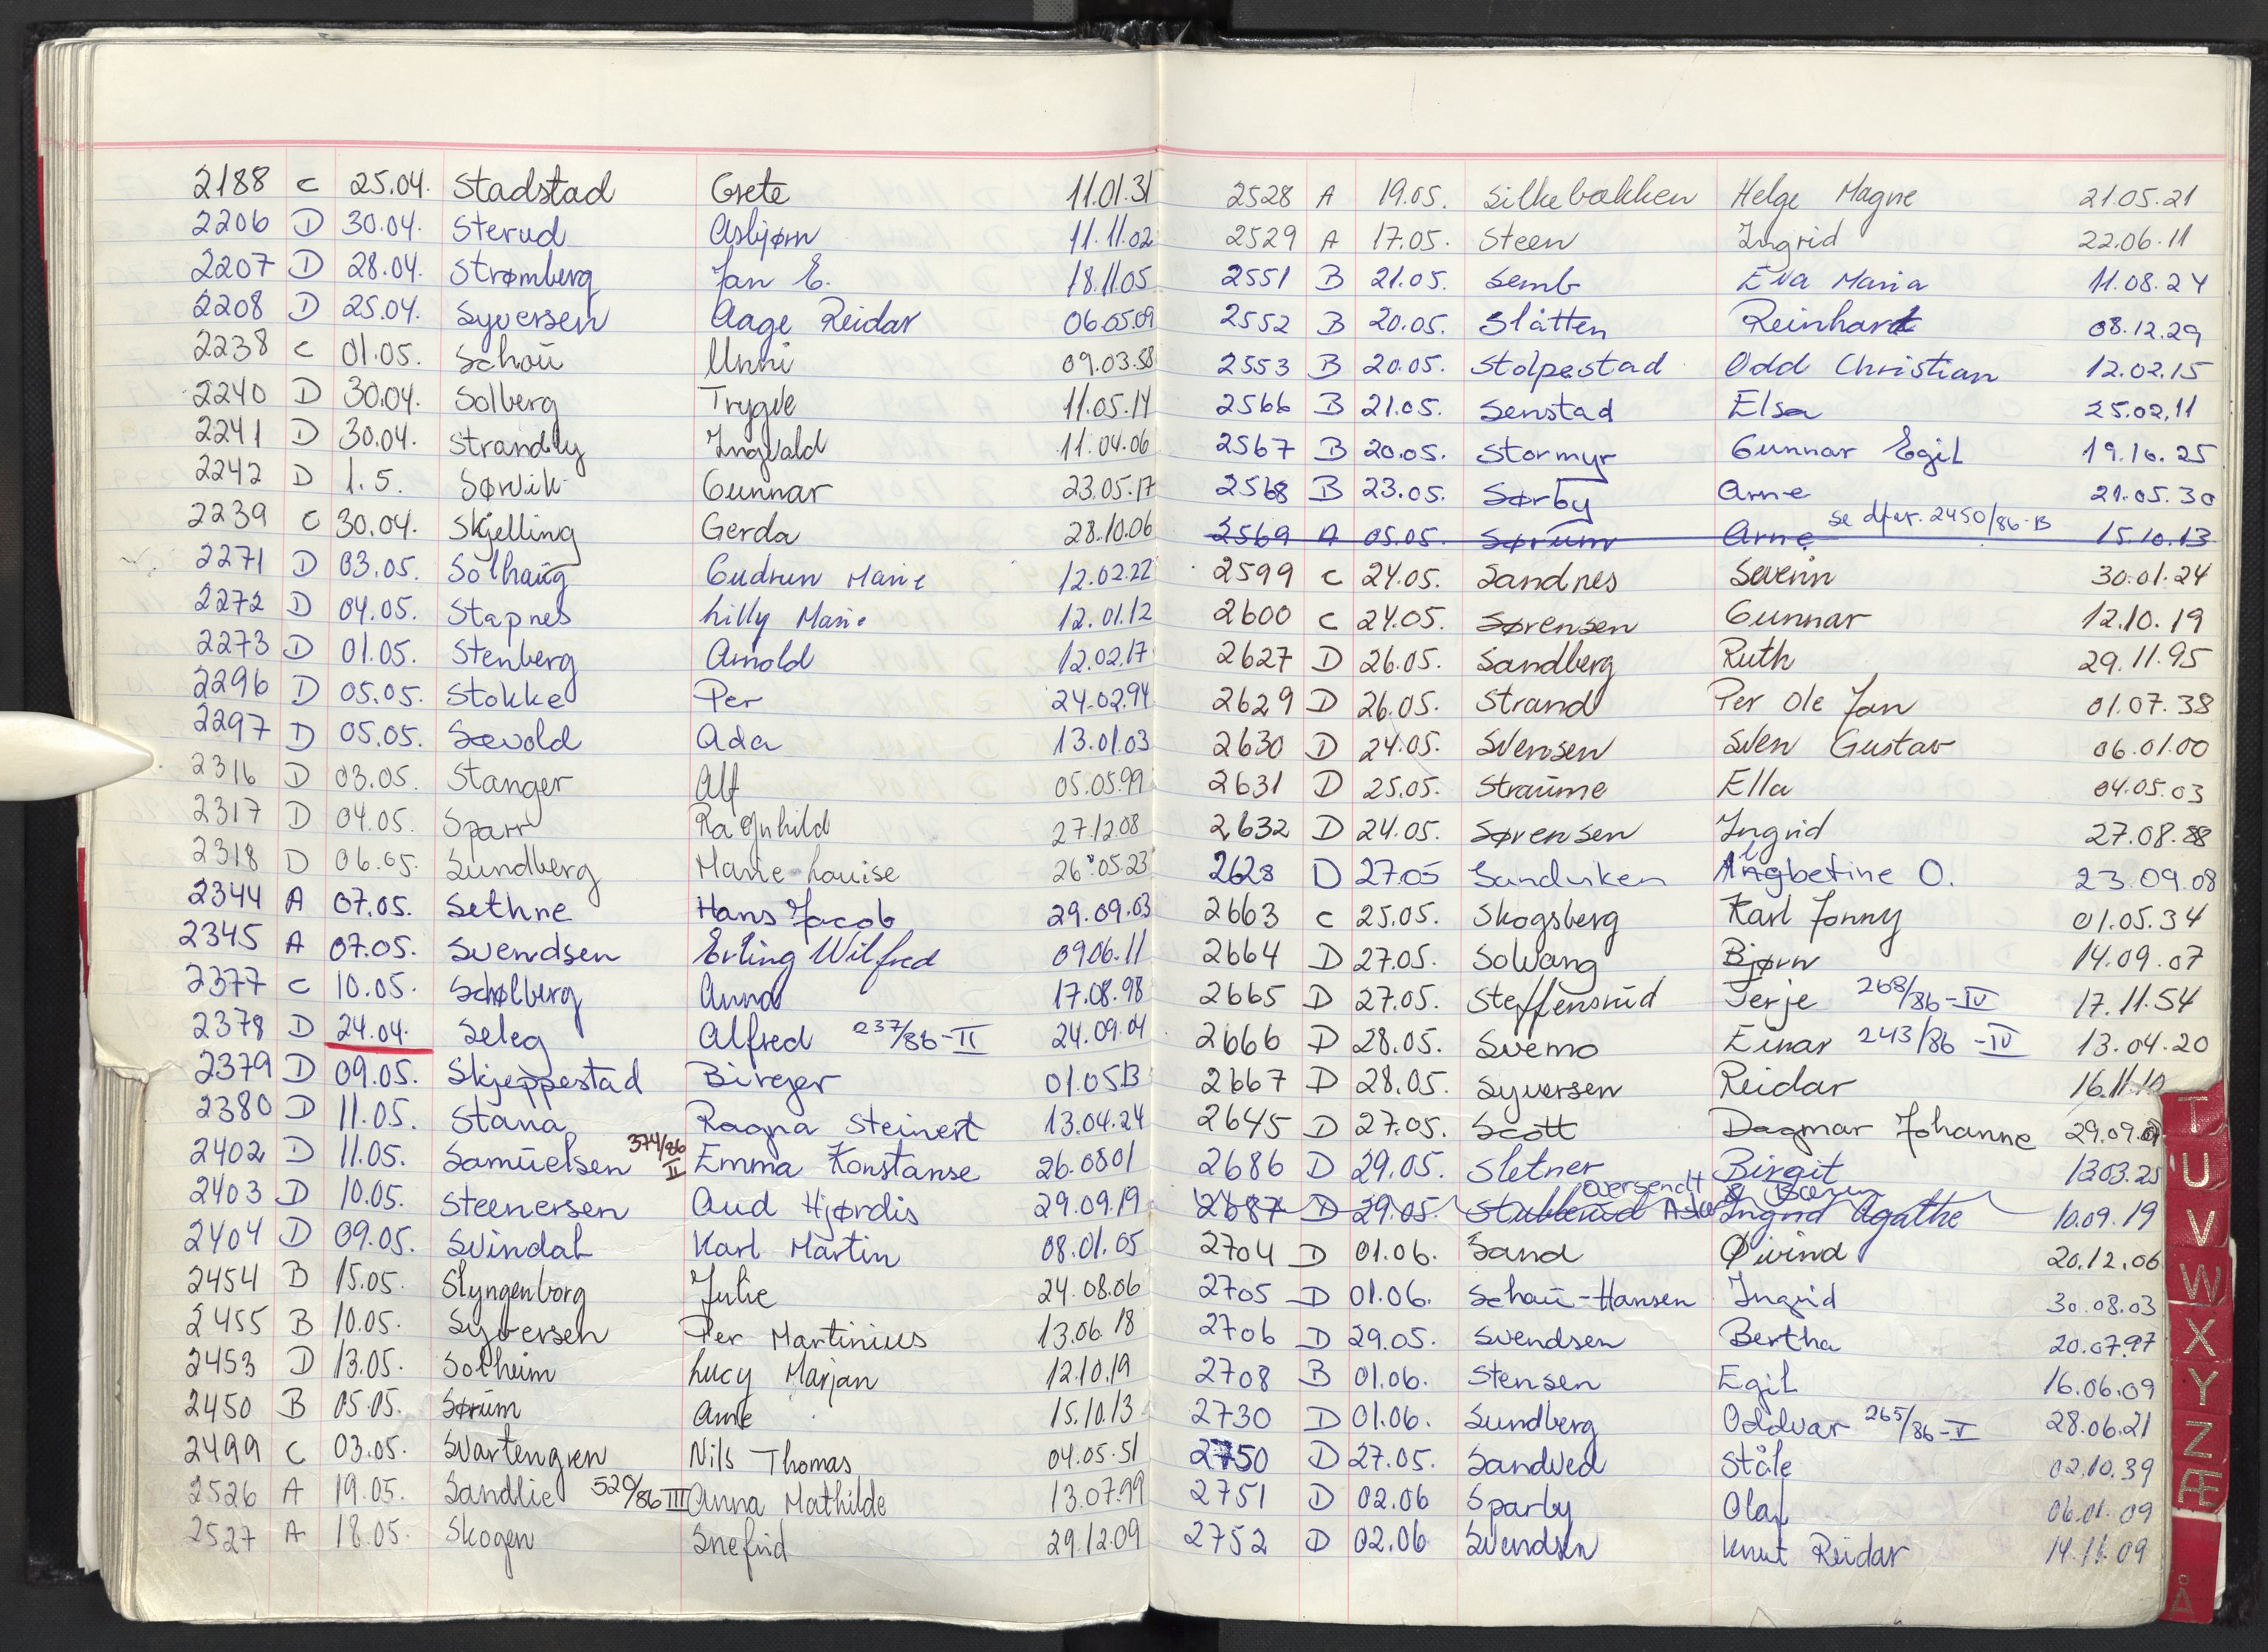 2188 C 25.04. Stadstad Grete 11.01.31
2206 D 30.04. Sterud Asbjørn 11.11.02
2207 D 28.04. Strømberg Jan E. 18.11.05
2208 D 25.04. Syversen Aage Reidar 06.05.09
2238 C 01.05. Schou Unni 09.03.58
2240 D 30.04. Solberg Trygve 11.05.14
2241 D 30.04. Strandby Ingvald 11.04.06
2242 D 1.5. Sørvik Gunnar 23.05.17
2239 C 30.04. Skjelling Gerda 28.10.06
2271 D 03.05. Solhaug Gudrun Marie 12.02.22
2272 D 04.05. Stapnes Lilly Marie 12.01.12
2273 D 01.05. Stenberg Arnold 12.02.17
2296 D 05.05. Stokke Per 24.02.94
2297 D 05.05. Sævold Ada 13.01.03
2316 D 03.05. Stanger Alf 05.05.99
2317 D 04.05. Sparr Ragnhild 27.12.08
2318 D 06.05. Sundberg Marie-Louise 26.05.23
2344 A 07.05. Sethne Hans Jacob 29.09.03
2345 A 07.05. Svendsen Erling Wilfred 09.06.11
2377 C 10.05. Schølberg Anna 17.08.98
2378 D 24.04. Seleg Alfred 237/86-II 24.09.04
2379 D 09.05. Skjeppestad Birger 01.05.13
2380 D 11.05. Stana Ragna Steinert 13.04.24
2402 D 11.05. Samuelsen 374/86 II Emma Konstanse 26.08.01
2403 D 10.05. Steenersen Aud Hjørdis 29.09.19
2404 D 09.05. Svindal Karl Martin 08.01.05
2454 B 15.05. Slyngenborg Julie 24.08.06
2455 B 10.05. Syversen Per Martinius 13.06.18
2453 D 13.05. Solheim Lucy Marjan 12.10.19
2450 B 05.05. Sørum Arne 15.10.13
2499 C 03.05. Svartengren Nils Thomas 04.05.51
2526 A 19.05. Sandlie 520/86 III Anna Mathilde 13.07.99
2527 A 18.05. Skogen Snefrid 29.12.09
2528 A 19.05. Silkebækken Helge Magne 21.05.21
2529 A 17.05. Steen Ingrid 22.06.11
2551 B 21.05. Semb Eva Maria 11.08.24
2552 B 20.05. Slåtten Reinhardt 08.12.29
2553 B 20.05. Stolpestad Odd Christian 12.02.15
2566 B 21.05. Senstad Elsa 25.02.11
2567 B 20.05. Stormyr Gunnar Egil 19.10.25
2568 B 23.05. Sørby Arne 21.05.30
2569 A 05.05. Sørum Arne se dfnr. 2450/86-B 15.10.13
2599 C 24.05. Sandnes Severin 30.01.24
2600 C 24.05. Sørensen Gunnar 12.10.19
2627 D 26.05. Sandberg Ruth 29.11.95
2629 D 26.05. Strand Per Ole Jan 01.07.38
2630 D 24.05. Svensen Sven Gustav 06.01.00
2631 D 25.05. Straume Ella 04.05.03
2632 D 24.05. Sørensen Ingrid 27.08.88
2628 D 27.05 Sandviken O. 23.09.08
2663 C 25.05. Skogsberg Karl Jonny 01.05.34
2664 D 27.05. Solvang Bjørn 14.09.07
2665 D 27.05. Steffensrud Terje 268/86-IV 17.11.54
2666 D 28.05. Svemo Einar 243/86-IV 13.04.20
2667 D 28.05. Syversen Reidar 16.11.10
2645 D 27.05. Scott Dagmar Johanne 29.09.
2686 D 29.05. Sletner Birgit 13.03.25
oversendt Asker & Bærum
2687 D 29.05. Stubberud Ingrid Agathe 10.09.19
2704 D 01.06. Sand Øivind 20.12.06
2705 D 01.06. Schau-Hansen Ingrid 30.08.03
2706 D 29.05. Svendsen Bertha 20.07.97
2708 B 01.06. Stensen Egil 16.06.09
2730 D 01.06. Sundberg Oddvar 265/86-V 28.06.21
2750 D 27.05. Sandved Ståle 02.10.39
2751 D 02.06 Sparby Olaf 06.01.09
2752 D 02.06 Svendsen Knut Reidar 14.11.09
T
U
V
W
X
Y
Z
Æ
Å